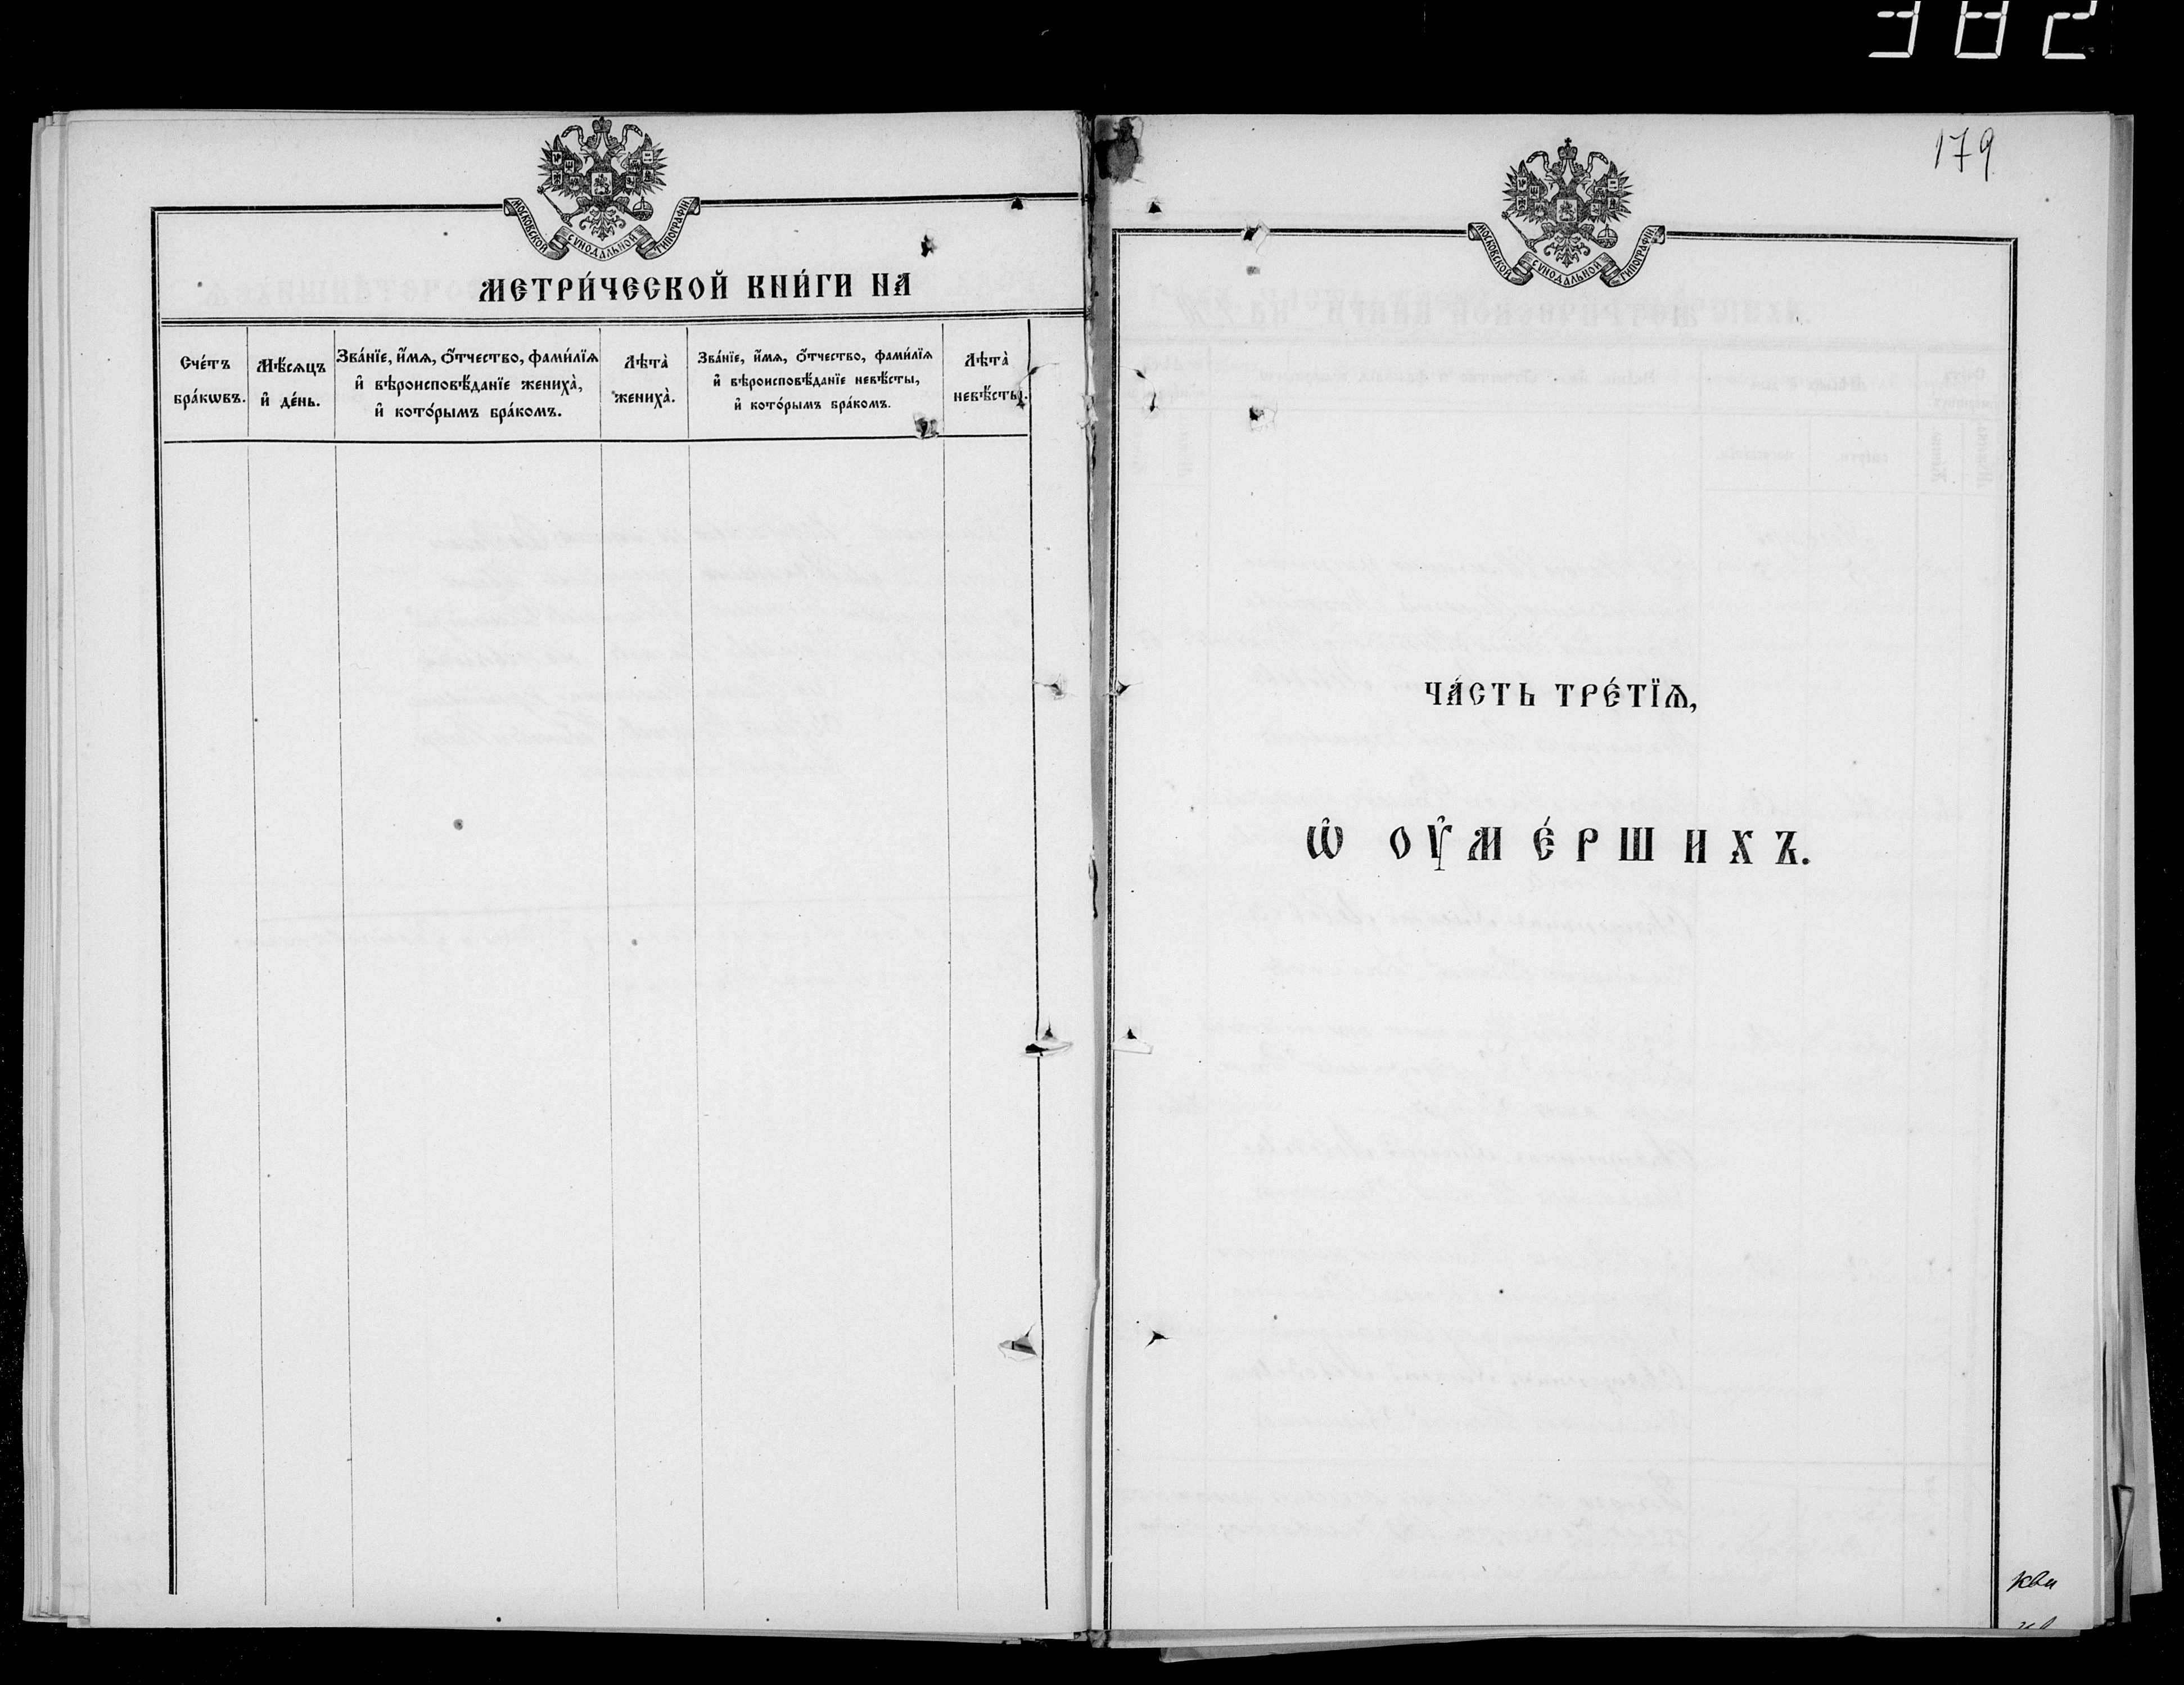 382
МОСКОВСКОЙ СѴНОДАЛЬНОЙ ТИПОГРАФІИ
МЕТРИ́ЧЕСКОЙ КНИ́ГИ НА
Сче́тъ бра́кѡвъ.
Мѣ́сяцъ и҆ де́нь.
Зва́нїе, и҆́мѧ, ѻ҆́тчество, фами́лїѧ
и҆ вѣроисповѣ́данїе жениха̀,
и҆ кото́рымъ бра́комъ.
Лѣта̀ жениха̀.
Зва́нїе, и҆́мѧ, ѻ҆́тчество, фами́лїѧ
и҆ вѣроисповѣ́данїе невѣ́сты,
и҆ кото́рымъ бра́комъ.
Лѣта̀ невѣ́сты.
179
МОСКОВСКОЙ СѴНОДАЛЬНОЙ ТИПОГРАФІИ
ЧА́СТЬ ТРЕ́ТЇѦ,
Ѡ҆ ОУ҆МЕ́РШИХЪ.